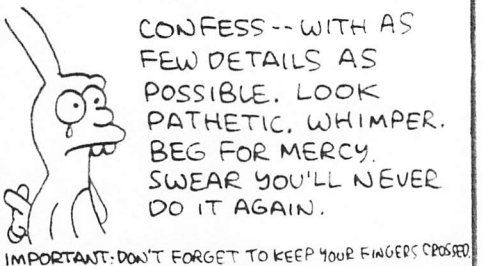 CONFESS -- WITH AS
FEW DETAILS AS
POSSIBLE. LOOK
PATHETIC. WHIMPER.
BEG FOR MERCY.
SWEAR YOU'LL NEVER
DO IT AGAIN.
IMPORTANT: DON'T FORGET TO KEEP YOUR FINGERS CROSSED.